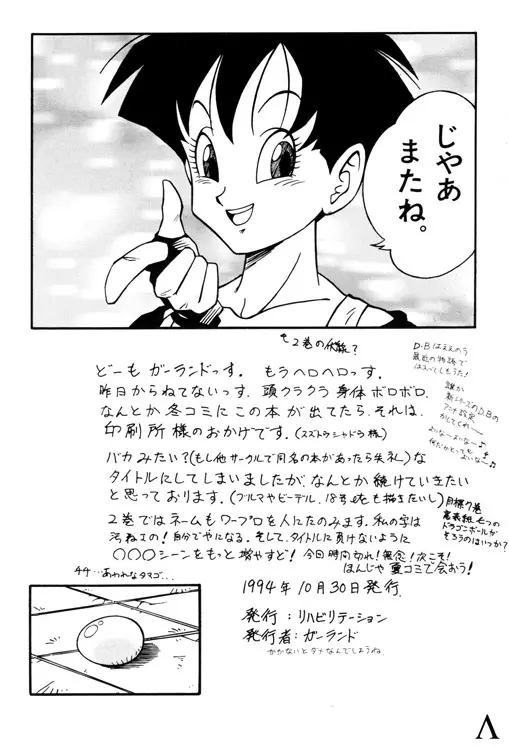 じゃあ
またね。
2巻の伏線?
どーも ガーランドっす。 もうヘロヘロっす。
昨日からねてないっす、頭クラクラ 身体 ボロボロ、
なんとか 冬コミに この本 が 出てたら、それは、
印刷所様のおかげです。(スズトウシャドウ様)
バカみたい?(もし他サークルで同名の本があったら失礼)な
タイトルにしてしまいましたが、なんとか続けていきたい
と思っております。(ブルマやビーデル、18号etcも描きたいし)
2巻ではネームもワープロを人にたのみます。私の字は
自分でやになる。そして、タイトルに負けないように
〇〇〇シーンをもっと増やすど! 今日時間切れ!無念!次こそ!
ほんじゃ 夏コミで会おう!
D.Bはええのう
最近の物語で
誰か
新シリーズのD.Bの
アニメ設定
よいな〜よいな〜♪
目標7巻
裏表紙 七つの
ドラゴンボールが
そろうのはいつか?
44…あわれなタマゴ…
1994年10月30日発行.
発行:リハビリテーション
発行者:ガーランド
かかないとダメなんでしょうね